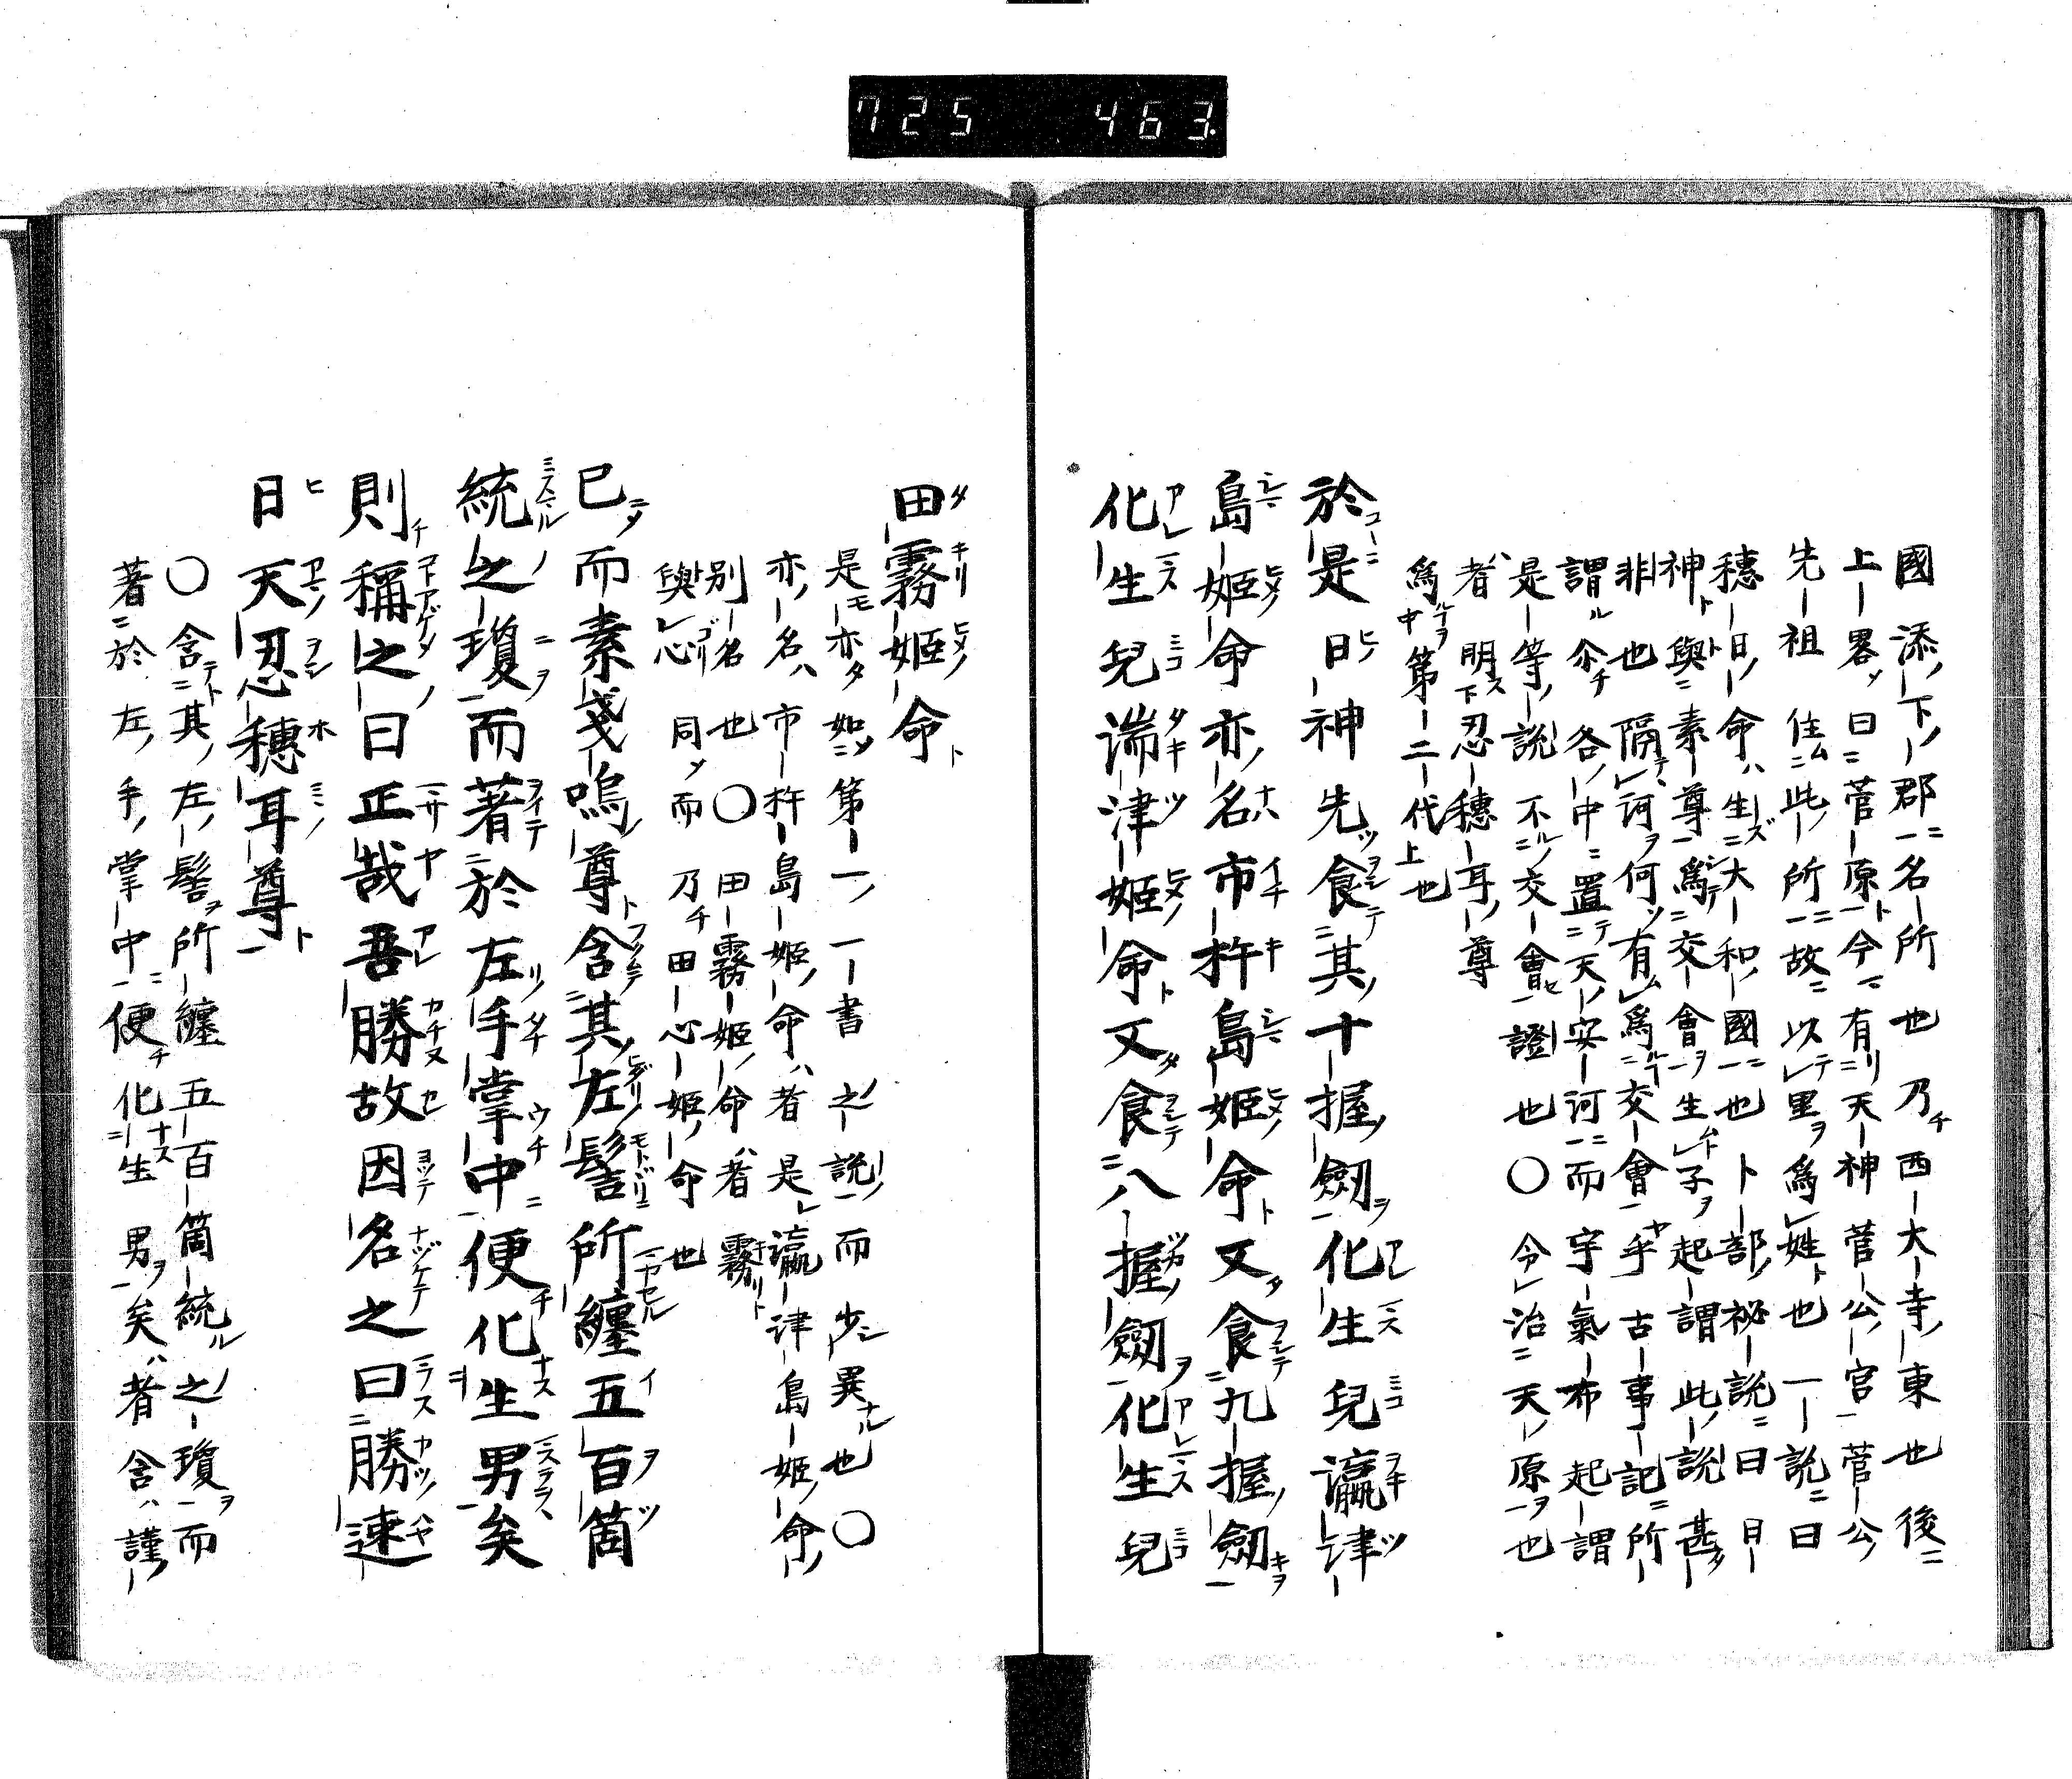 725 463
國添下郡名所也乃西大寺東也後
上畧曰菅原今有天神菅公宮菅公
先祖住此所故以里爲姓也一說曰
穗日命生大和國也卜部祕說曰日
神與素尊爲交會生子起謂此說甚
非也隔河何有爲交會乎古事記所
謂尒各中置天安河而宇氣布起謂
是等說不交會證也〇令治天原也
者明忍穗耳尊
爲第二代也
於是日神先食其十握劔化生兒瀛津
島姬命亦名市杵島姬命又食九握劔
化生兒湍津姬命又食八握劔化生兒
田霧姬命
是亦如第一一書之說而少異也〇
亦名市杵島姬命者是瀛津島姬命
別名也〇田霧姬命者霧
與心同而乃田心姬命也
已而素戔嗚尊含其左髻所纏五百箇
統之瓊而著於左手掌中便化生男矣
則稱之曰正哉吾勝故因名之曰勝速
日天忍穗耳尊
〇含其左髻所纏五百箇統之瓊而
著於左手掌中便化生男矣者含謹